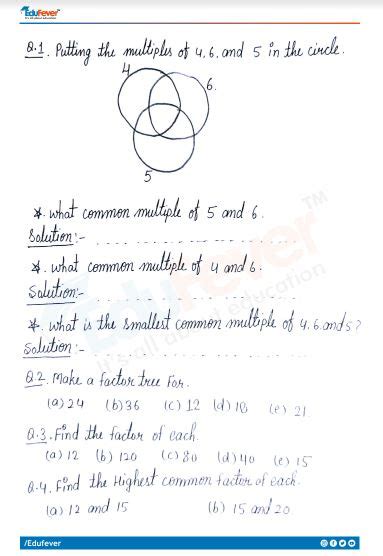 EduFever
It's all about education
Q.1. Putting the multiples of 4, 6, and 5 in the circle.
4
6.
5
*. What common multiple of 5 and 6.
Solution:- ...................
*. What common multiple of 4 and 6.
Solution:- ...................
*. What is the smallest common multiple of 4, 6, and 5?
Solution:- ...................
EduFever TM
It's all about education
Q.2. Make a factor tree For.
(a) 24 (b) 36 (c) 12 (d) 18 (e) 21
Q.3. Find the factor of each.
(a) 12 (b) 120 (c) 80 (d) 40 (e) 15
Q.4. Find the Highest common factor of each.
(a) 12 and 15 (b) 15 and 20.
/Edufever